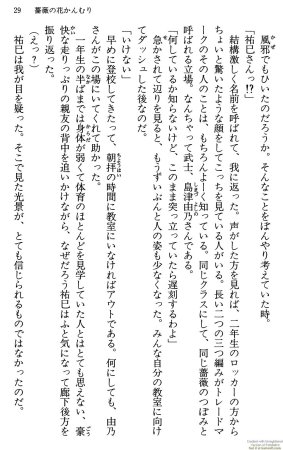 29　薔薇の花かんむり
風邪でもひいたのだろうか。そんなことをぼんやり考えていた時。
「祐巳さんっ!?」
結構激しく名前を呼ばれて、我に返った。声がした方を見れば、二年生のロッカーの方から
ちょいと驚いたような顔をしてこっちを見ている人がいる。長い二つの三つ編みがトレードマ
ークのその人のことは、もちろんよーく知っている。同じクラスにして、同じ薔薇のつぼみと
呼ばれる立場。なんちゃって武士、島津由乃さんである。
「何しているか知らないけど、このまま突っ立っていたら遅刻するわよ」
急かされて辺りを見ると、もうずいぶんと人の姿も少なくなった。みんな自分の教室に向け
てダッシュした後なのだ。
「いけない」
早めに登校してきたって、朝拝の時間に教室にいなければアウトである。何にしても、由乃
さんがこの場にいてくれて助かった。
一年生の半ばまでは身体が弱くて体育のほとんどを見学していた人とはとても思えない、豪
快な走りっぷりの親友の背中を追いかけながら、なぜだろう祐巳はふと気になって廊下後方を
振り返った。
（えっ？）
祐巳は我が目を疑った。そこで見た光景が、とても信じられるものではなかったのだ。